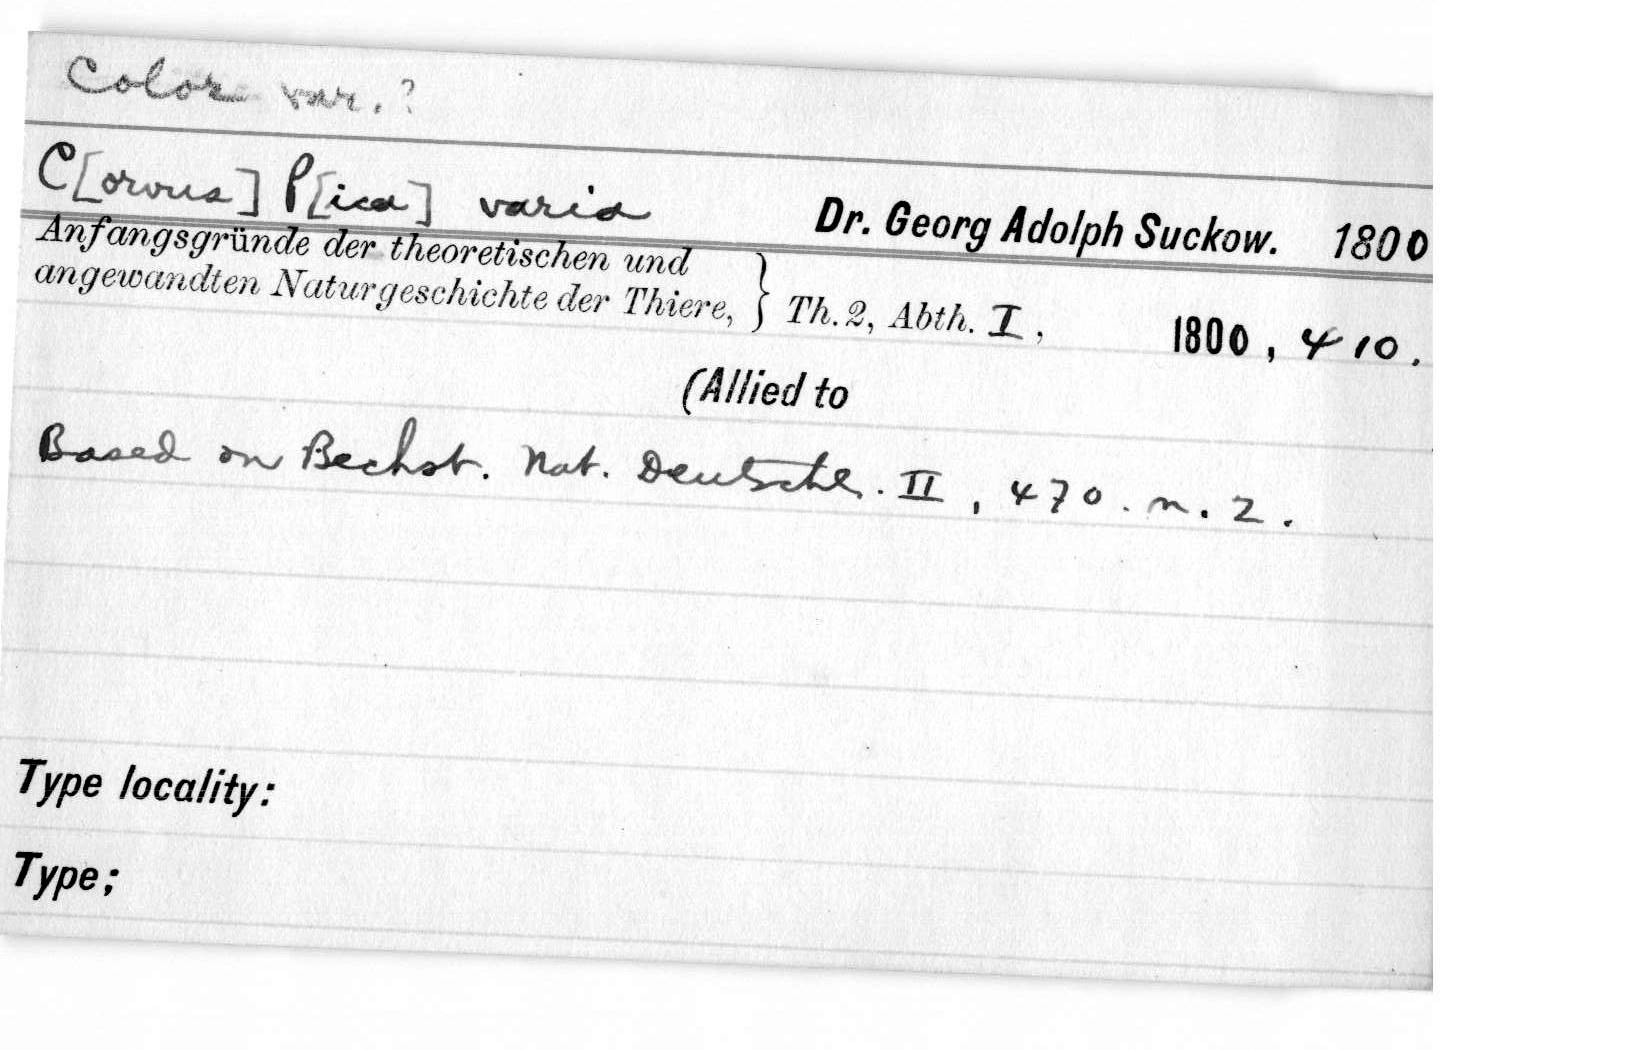 Color var.?
C[orvus] P[ica] varia Dr. Georg Adolph Suckow. 1800
Anfangsgründe der theoretischen und
angewandten Naturgeschichte der Thiere, } Th. 2, Abth. I, 1800, 410.
(Allied to
Based on Bechst. Nat. Deutschl. II, 470. n. 2.
Type locality:
Type;